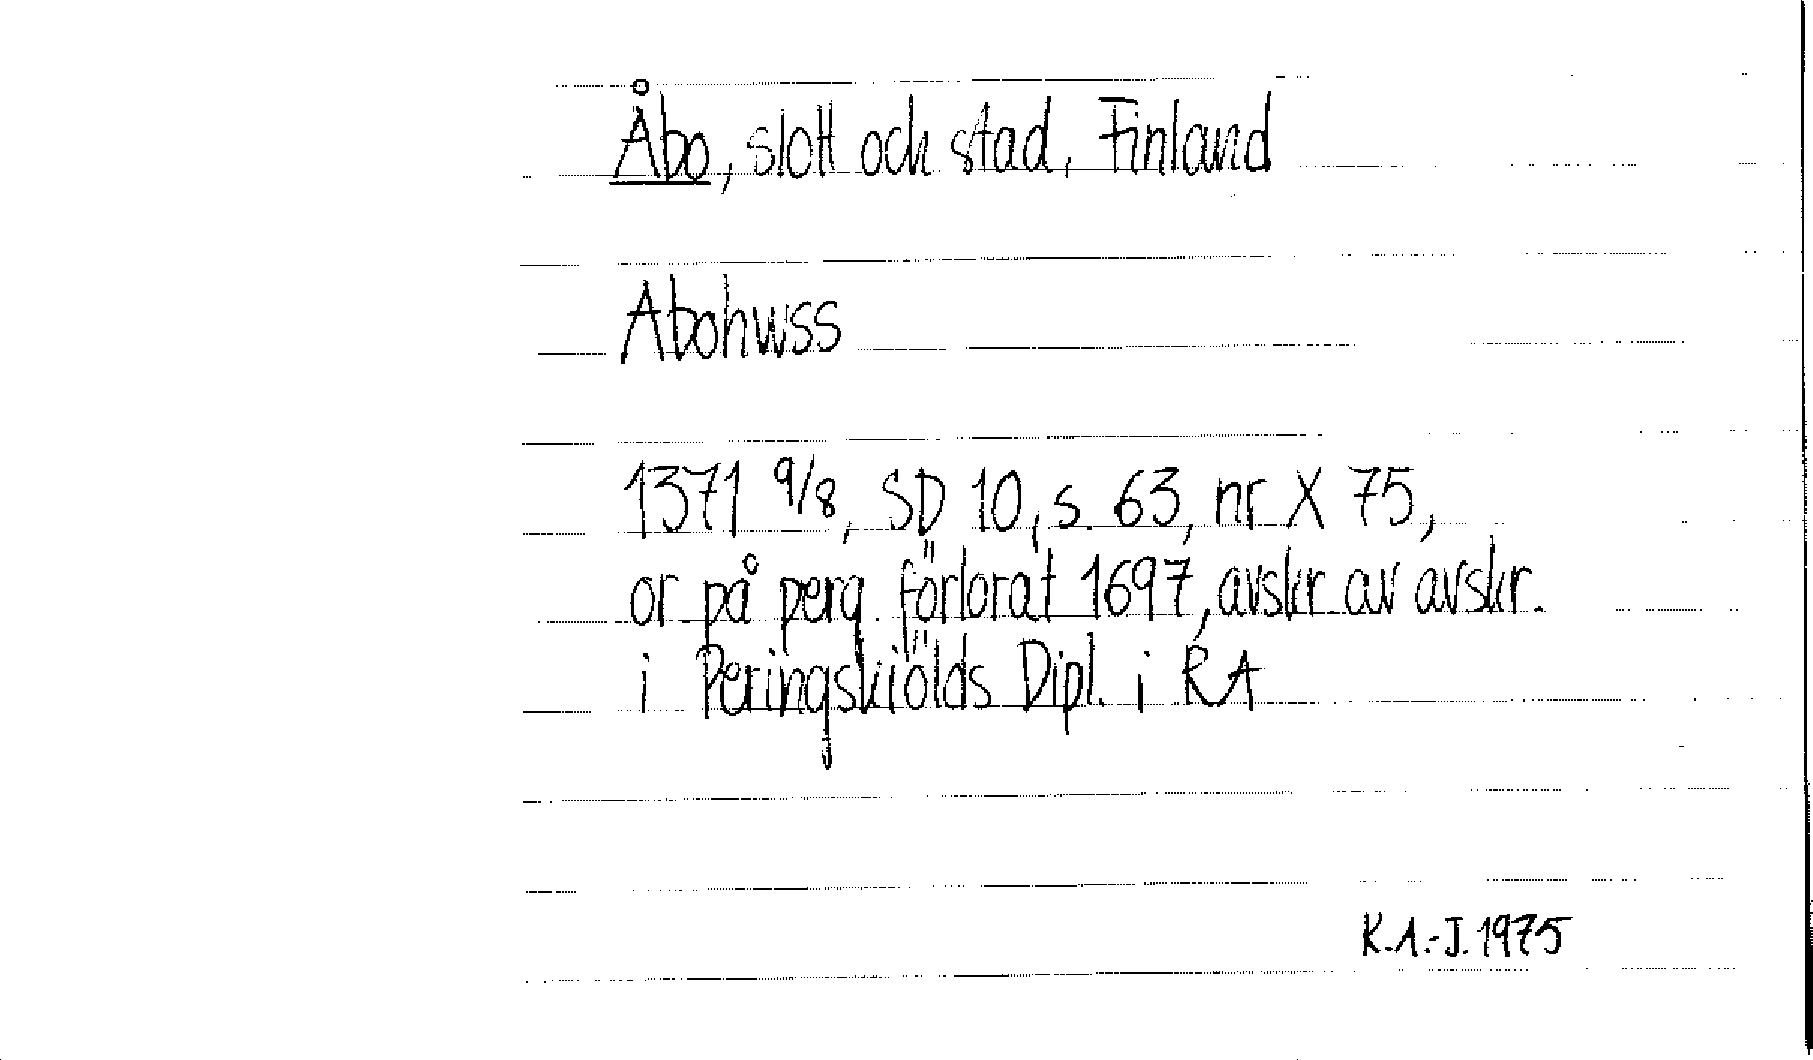 Åbo, slott och stad, Finland
Abohwss
1371 9/8, SD 10, s. 63, nr X 75,
or på perg. förlorat 1697, avskr av avskr.
i Peringskiölds Dipl. i RA
K.A.-J. 1975